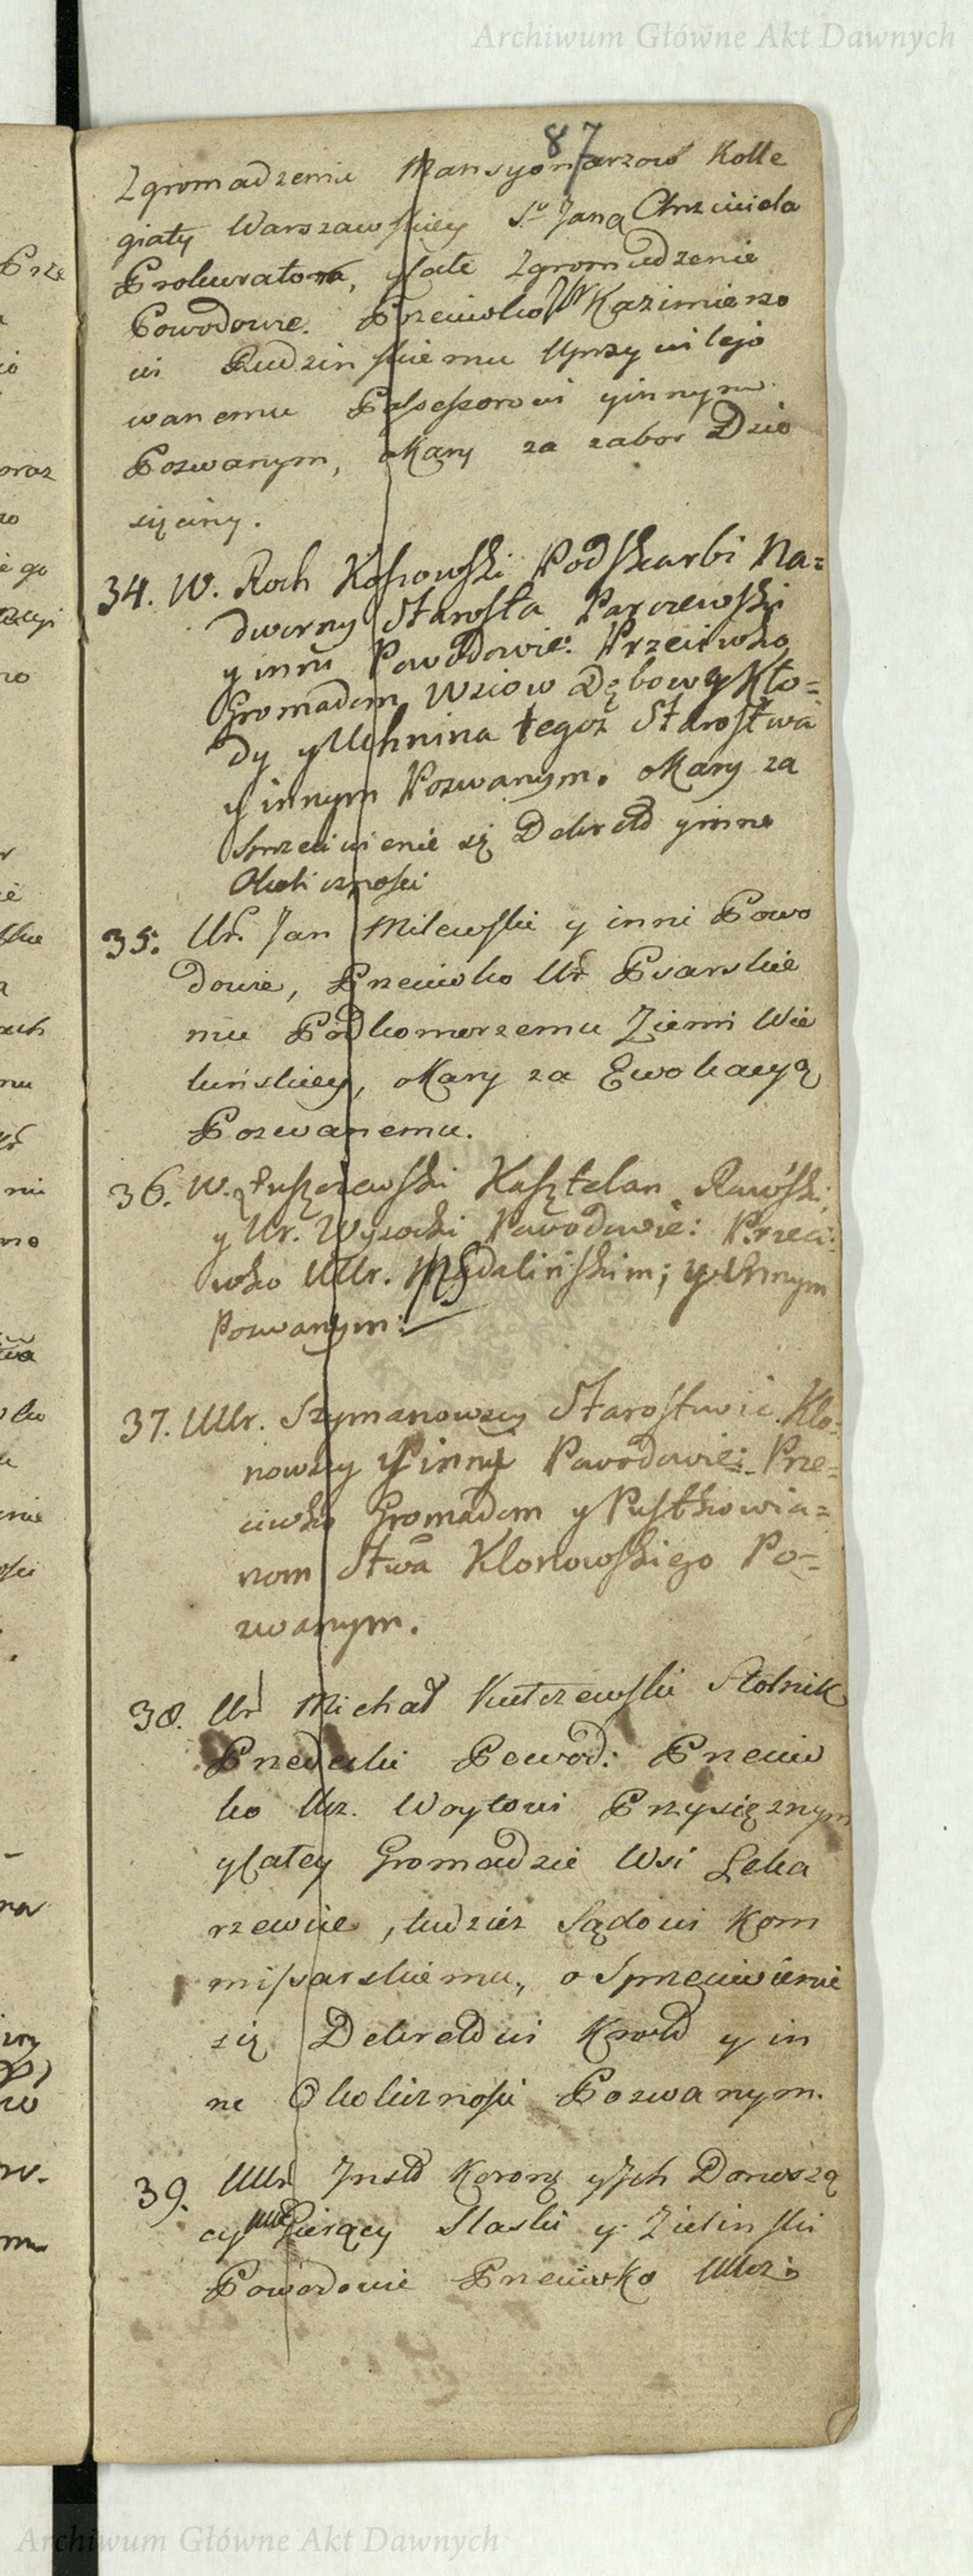 Archiwum Główne Akt Dawnych
87
Zgromadzenia Mansyonarzow Kolle
giaty Warszawskiey So Jana Chrzciciela
Prokurator, ycałe Zgromadzenie
Powodowie. Przeciwko W Kazimierzo
wi Rudzinskiemu Uprzywilejo
wanemu Possessorowi yinnym
Pozwanym, oKary za zabor Dzie
sięciny.
34. W. Roch Kossowski Podskarbi Na=
dworny Starosta Parczewski
y inni Powodowie: Przeciwko
Gromadom Wsiow Dębowey Kło=
dy y Uhnina tegoż Starostwa
y innym Pozwanym. oKary za
Sprzeciwienie się Dekretd yinne
Okoliczności
35. Ur. Jan Milewski y inni Powo
dowie, Przeciwko Ur Psarskie
mu Podkomorzemu Ziemi Wie
luńskiey, oKary za Ewokacyą
Pozwanemu.
36. W. Łuszczewski Kasztelan Rawski
y Ur. Wysocki Powodowie: Przeci=
wko UUr. Madalińskim; y Innym
Pozwanym:
37. UUr. Szymanowscy Starostwie Klo=
nowscy y inni Powodowie: Prze=
ciwko Gromadom y Pustkowia=
nom Stwa Klonowskiego Po=
zwanym.
38. Ur Michał Kutczewski Stolnik
Przedecki Powod: Przeciw
ko Ur. Woytowi Przysięznym
ycałey Gromadzie Wsi Leka
rzewice, tudzież Sądowi Kom
missarskiemu, o Sprzeciwienie
się Dekretdwi Krold y in
ne Okoliczności Pozwanym.
39. UUr Instd Korony yIch Donoszą
cy Gierący Slaski y Zielinski
Powodowie Przeciwko UUr:
Archiwum Główne Akt Dawnych